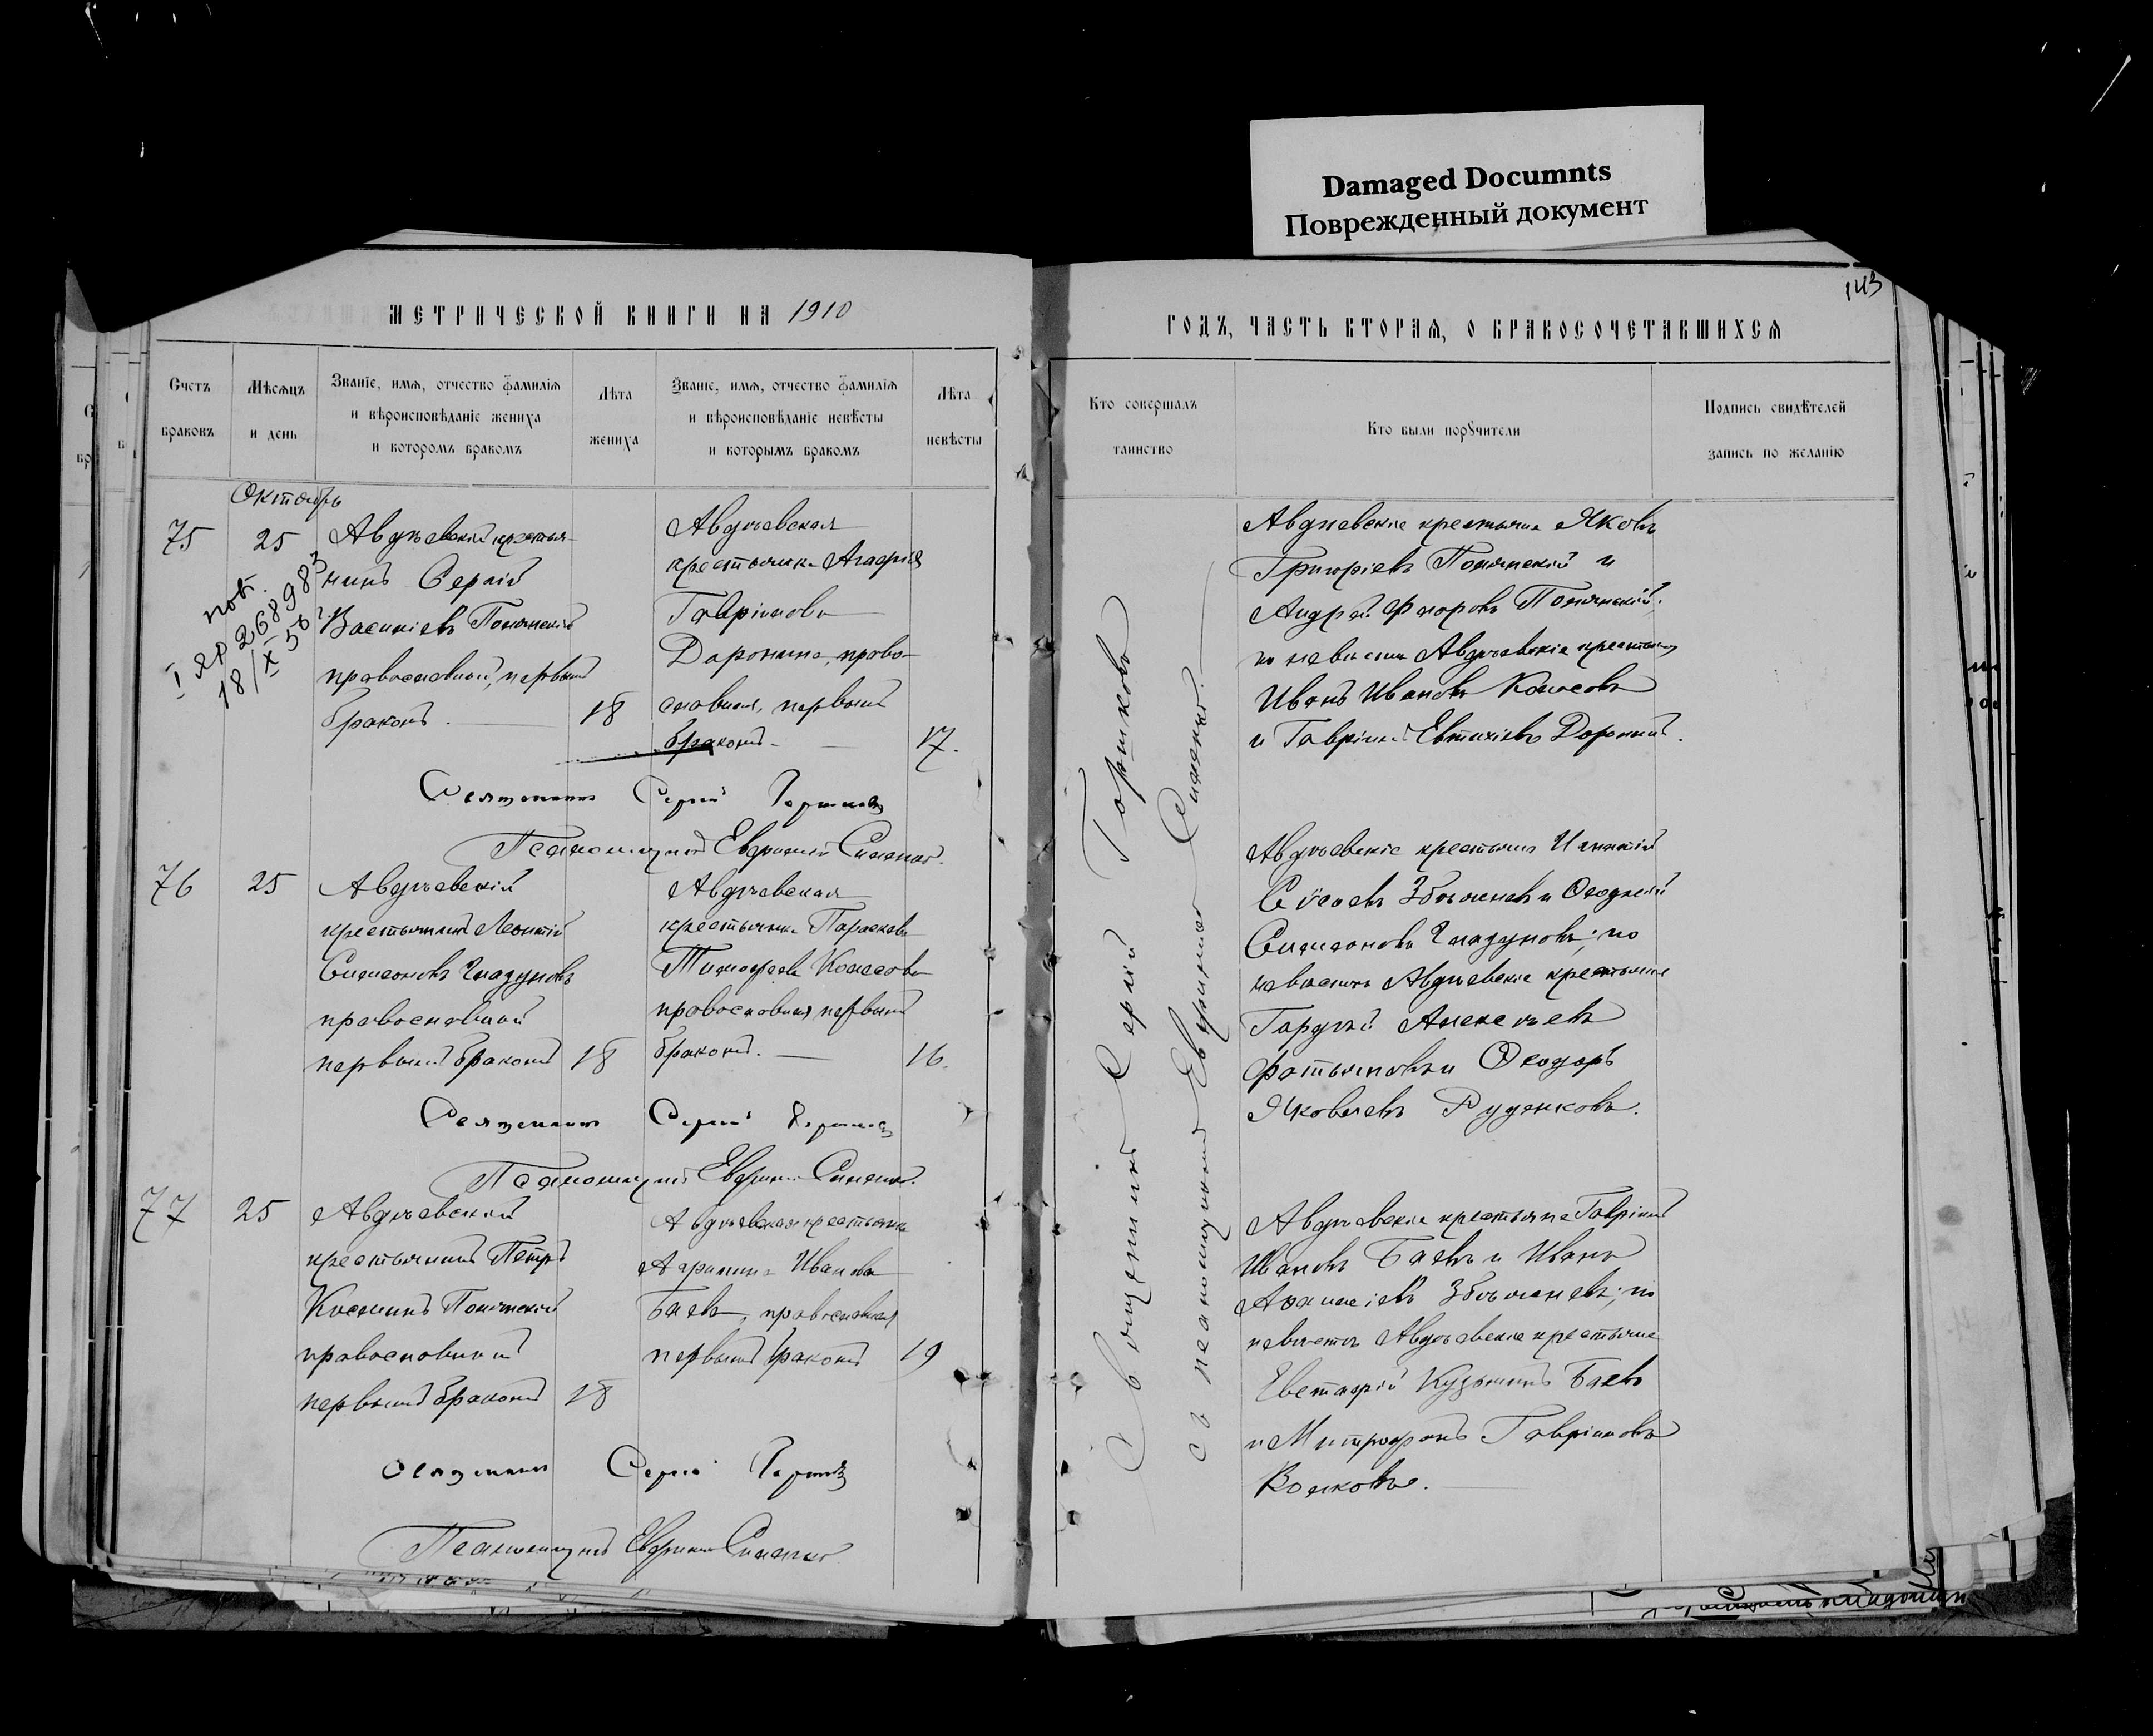 Damaged Documnts
Поврежденный документ
143
МЕТРИЧЕСКОЙ КНИГИ НА 1910
ГОДЪ, ЧАСТЬ ВТОРАЯ, О БРАКОСОЧЕТАВШИХСЯ
Счетъ браковъ
Мѣсяцъ и день
Званіе, имя, отчество фамилія и вѣроисповѣданіе жениха и которомъ бракомъ
Лѣта жениха
Званіе, имя, отчество фамилія и вѣроисповѣданіе невѣсты и которымъ бракомъ
Лѣта невѣсты
Кто совершалъ таинство
Кто были порꙋчители
Подпись свидѣтелей запись по желанію
Октябрь
75
25
пов.
I ЯР 268983
18/X 58
Авдѣевскій крестья-
нинъ Сергій
Василіевъ
православный, первымъ
бракомъ.
18
Авдѣевская
крестьянка Агафія
Гавріилова
Доронина, право-
славная, первымъ
бракомъ
17.
Священникъ Сергій Горшковъ
Псаломщикъ Евфимій
Авдѣевскіе крестьяне Яковъ
Григоріевъ и
Андрей Флоровъ
по невѣстѣ Авдѣевскіе крестьяне
Иванъ Ивановъ Колосовъ
и Гавріилъ Евтихіевъ Доронинъ.
76
25
Авдѣевскій
крестьянинъ Леонтій
Симеоновъ Гладуновъ
православный
первымъ бракомъ
18
Авдѣевская
крестьянка Параскева
Тимофеева Колосова
православная первымъ
бракомъ.
16.
Священникъ Сергій Горшковъ
Псаломщикъ Евфимій
Авдѣевскіе крестьяне Игнатій
и
Симеоновъ Гладуновъ; по
невѣстѣ Авдѣевскіе крестьяне
Гордѣй Алексѣевъ
и Ѳеодоръ
Яковлевъ Руденковъ.
77
25
Авдѣевскій
крестьянинъ Петръ
Косминъ
православный
первымъ бракомъ
18
Авдѣевская крестьянка
Агрипина Иванова
Баева, православная
первымъ бракомъ
19
Священникъ Сергій Горшковъ
Псаломщикъ Евфимій
Авдѣевскіе крестьяне Гавріилъ
Ивановъ Баевъ и Иванъ
Аѳанасіевъ по
невѣстѣ Авдѣевскіе крестьяне
Евстафій Кузьминъ Баевъ
и Митрофанъ Гавріиловъ
Волковъ.
Священникъ Сергій Горшковъ
съ псаломщикомъ Евфиміемъ